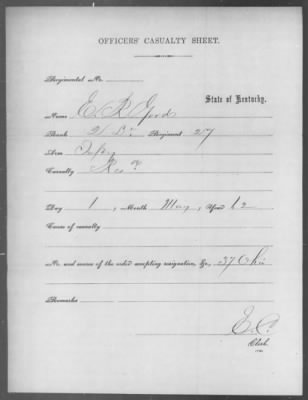 OFFICERS' CASUALTY SHEET.
Regimental No.
State of Kentucky.
Name E R Goods
Rank 2 Lt Regiment 27
Arm Infty
Casualty Resd
Day 1, Month May, Year 62
Cause of casualty
No. and source of the order accepting resignation, &c., 37
Remarks
E. C.
Clerk.